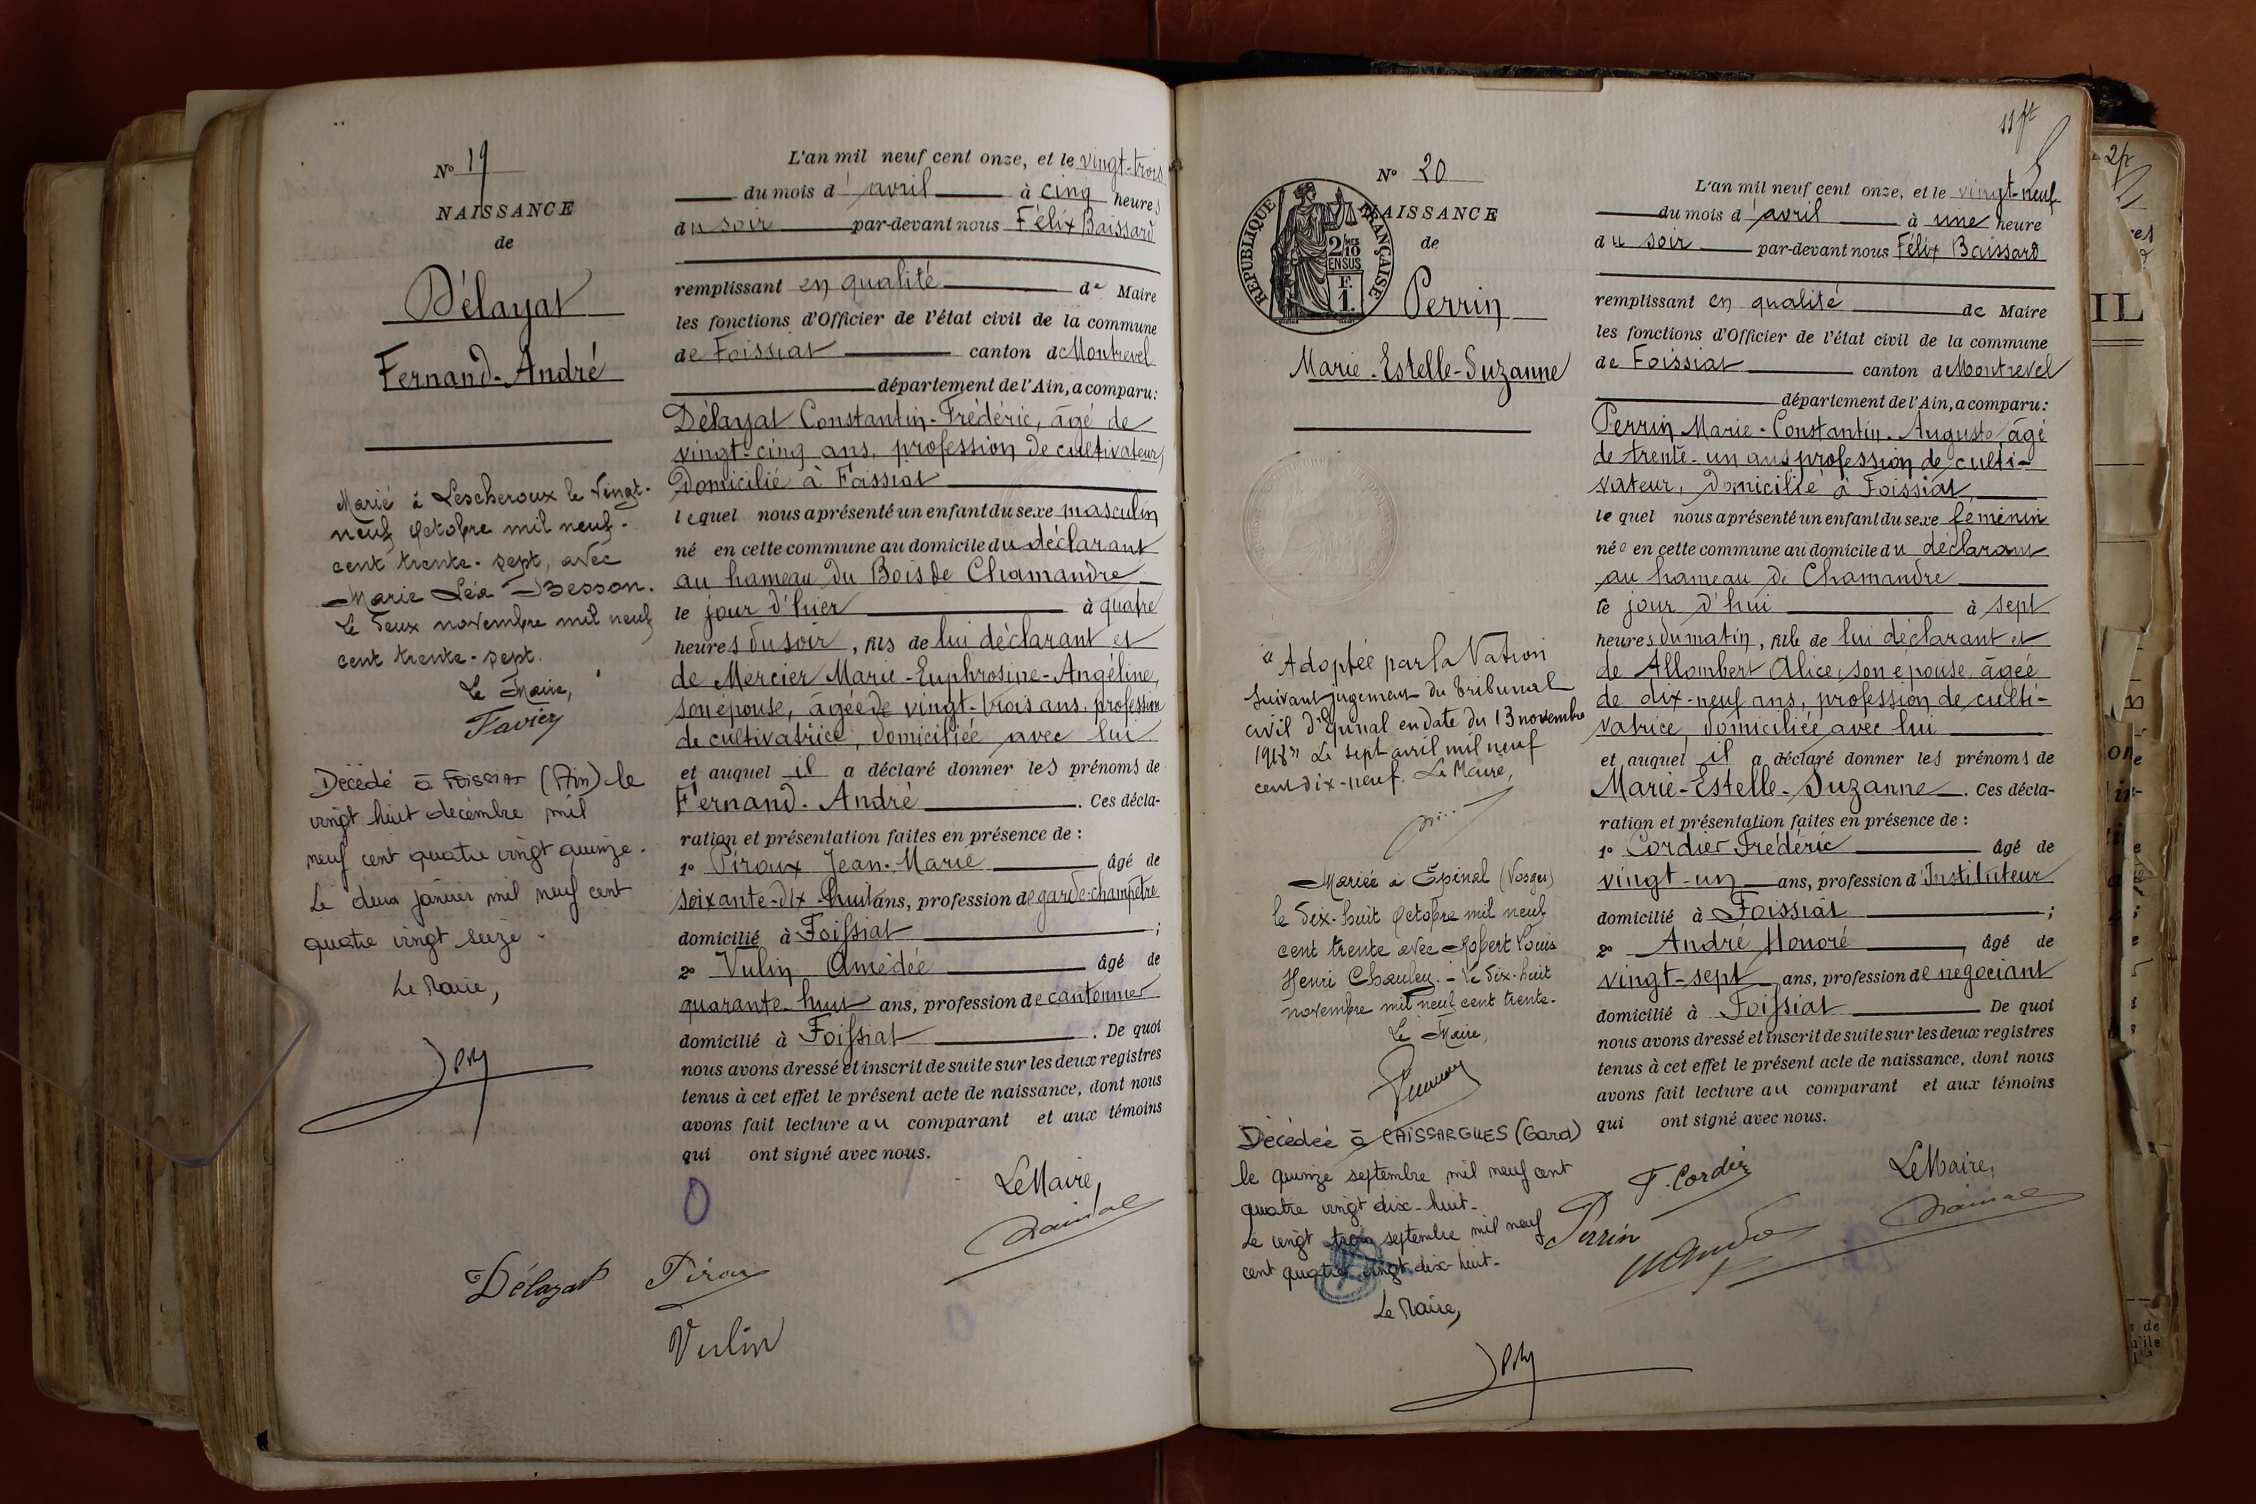 N° 19
NAISSANCE
de
Délayat
Fernand-André
Marié à Lescheroux le vingt-
neuf Octobre mil neuf-
cent trente-sept, avec
Marie Léa Besson.
Le deux novembre mil neuf
cent trente-sept.
Le Maire,
Favier
Décédé à FOISSIAT (Ain) le
vingt huit décembre mil
neuf cent quatre vingt quinze.
Le deux janvier mil neuf cent
quatre vingt seize.
Le Maire,
L'an mil neuf cent onze, et le vingt-trois
du mois d'avril à cinq heures
du soir par-devant nous Félix Baissard
remplissant en qualité de Maire
les fonctions d'Officier de l'état civil de la commune
de Foissiat canton de Montrevel
département de l'Ain, a comparu:
Délayat Constantin-Frédéric, âgé de
vingt-cinq ans, profession de cultivateur,
domicilié à Foissiat
lequel nous a présenté un enfant du sexe masculin
né en cette commune au domicile du déclarant
au hameau du Bois de Chamandre
le jour d'hier à quatre
heures du soir, fils de lui déclarant et
de Mercier Marie-Euphrosine-Angéline,
son épouse, âgée de vingt-trois ans, profession
de cultivatrice, domiciliée avec lui
et auquel il a déclaré donner les prénoms de
Fernand-André. Ces décla-
ration et présentation faites en présence de :
1° Piroux Jean-Marie âgé de
soixante-dix-huit ans, profession de garde-champêtre
domicilié à Foissiat ;
2° Vulin Amédée âgé de
quarante-huit ans, profession de cantonnier
domicilié à Foissiat. De quoi
nous avons dressé et inscrit de suite sur les deux registres
tenus à cet effet le présent acte de naissance, dont nous
avons fait lecture au comparant et aux témoins
qui ont signé avec nous.
Le Maire,
Délayat
Vulin
11 ft
N° 20
NAISSANCE
de
RÉPUBLIQUE FRANÇAISE
2/10
EN SUS
F.
1.
Perrin
Marie-Estelle-Suzanne
"Adoptée par la Nation
suivant jugement du tribunal
civil d'Epinal en date du 13 novembre
1918" Le sept avril mil neuf
cent dix-neuf. Le Maire,
Mariée à Epinal (Vosges)
le dix-huit Octobre mil neuf
cent trente avec Robert Louis
Henri - Le dix-huit
novembre mil neuf cent trente.
Le Maire,
Décédée à CAISSARGUES (Gard)
le quinze septembre mil neuf cent
quatre vingt dix-huit-
Le vingt trois septembre mil neuf
cent quatre vingt dix-huit-
Le Maire,
L'an mil neuf cent onze, et le vingt-neuf
du mois d'avril à une heure
du soir par-devant nous Félix Baissard
remplissant en qualité de Maire
les fonctions d'Officier de l'état civil de la commune
de Foissiat canton de Montrevel
département de l'Ain, a comparu:
Perrin Marie-Constantin-Auguste, âgé
de trente-un ans profession de culti-
vateur, domicilié à Foissiat,
lequel nous a présenté un enfant du sexe féminin
née en cette commune au domicile du déclarant
au hameau de Chamandre
le jour d'hui à sept
heures du matin, fille de lui déclarant et
de Allombert Alice, son épouse, âgée
de dix-neuf ans, profession de culti-
vatrice, domiciliée avec lui
et auquel il a déclaré donner les prénoms de
Marie-Estelle-Suzanne. Ces décla-
ration et présentation faites en présence de :
1° Cordier Frédéric âgé de
vingt-un ans, profession d'Instituteur
domicilié à Foissiat ;
2° André Honoré âgé de
vingt-sept ans, profession de négociant
domicilié à Foissiat De quoi
nous avons dressé et inscrit de suite sur les deux registres
tenus à cet effet le présent acte de naissance, dont nous
avons fait lecture au comparant et aux témoins
qui ont signé avec nous.
F. Cordier
Le Maire,
Perrin
IL